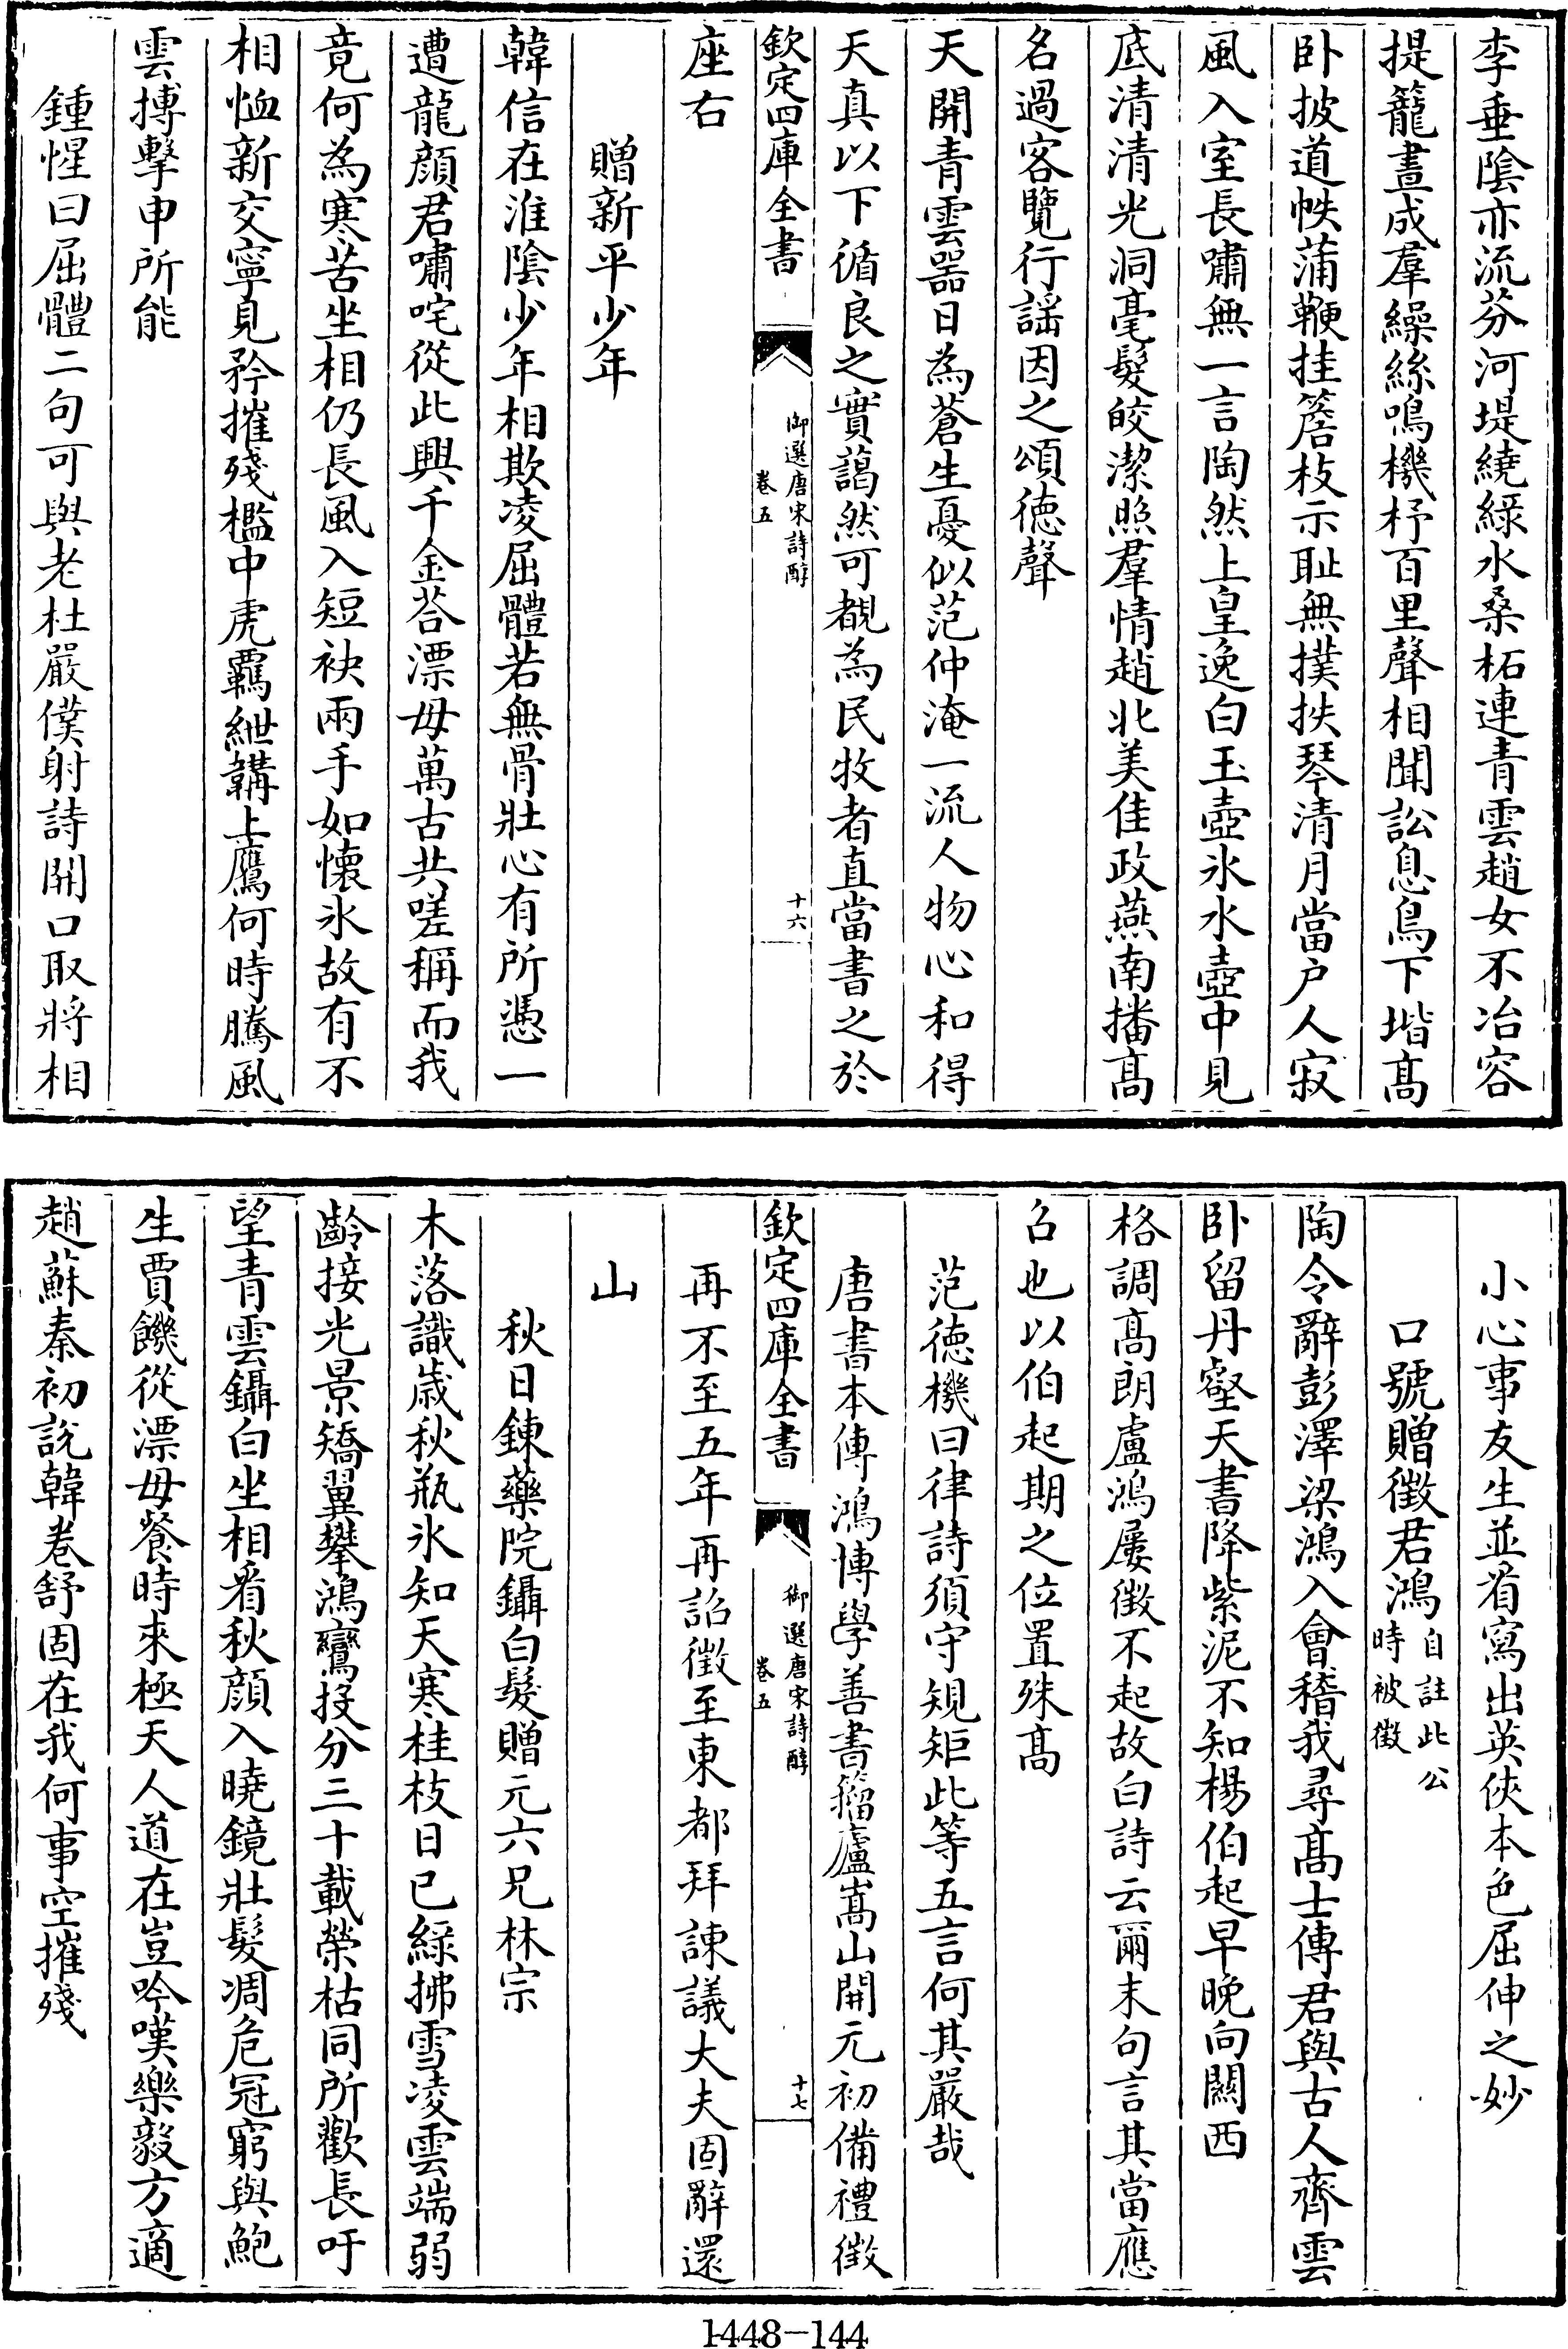 李垂陰亦流芬河堤繞綠水桑柘連青雲趙女不冶容
提籠晝成羣繰絲鳴機杼百里聲相聞訟息鳥下堦高
卧披道帙蒲鞭挂簷枝示耻無撲抶琴清月當户人寂
風入室長嘯無一言陶然上皇逸白玉壺氷水壺中見
底清清光洞毫髮皎潔照羣情趙北美佳政燕南播高
名過客覽行謡因之頌徳聲
天開青雲器日為蒼生憂似范仲淹一流人物心和得
天真以下循良之實藹然可覩為民牧者直當書之於
欽定四庫全書
御選唐宋詩醇
卷五
十六
座右
贈新平少年
韓信在淮陰少年相欺凌屈體若無骨壯心有所憑一
遭龍顔君嘯咤從此興千金荅漂母萬古共嗟稱而我
竟何為寒苦坐相仍長風入短袂兩手如懷氷故有不
相恤新交寧見矜摧殘檻中虎羈紲韝上鷹何時騰風
雲搏擊申所能
鍾惺曰屈體二句可與老杜嚴僕射詩開口取將相
小心事友生並㸔寫出英俠本色屈伸之妙
口號贈徵君鴻
自註此公
時被徵
陶令辭彭澤梁鴻入會稽我尋高士傳君與古人齊雲
卧留丹壑天書降紫泥不知楊伯起早晚向闗西
格調高朗盧鴻屢徵不起故白詩云爾末句言其當應
召也以伯起期之位置殊高
范徳機曰律詩須守規矩此等五言何其嚴哉
唐書本傳鴻博學善書籀廬嵩山開元初備禮徵
欽定四庫全書
御選唐宋詩醇
卷五
十七
再不至五年再詔徵至東都拜諫議大夫固辭還
山
秋日鍊藥院鑷白髮贈元六兄林宗
木落識歳秋瓶氷知天寒桂枝日已綠拂雪凌雲端弱
齡接光景矯翼攀鴻鸞投分三十載榮枯同所歡長吁
望青雲鑷白坐相㸔秋顔入曉鏡壯髮凋危冠窮與鮑
生賈饑從漂母餐時來極天人道在豈吟嘆樂毅方適
趙蘇秦初説韓卷舒固在我何事空摧殘
1448-144